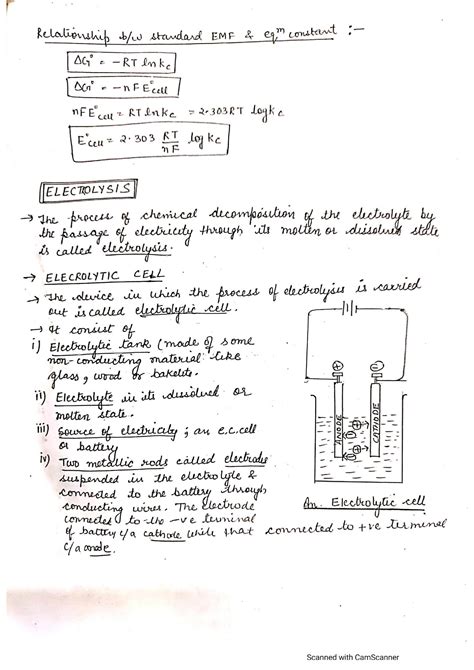 Relationship b/w standard EMF & eqm constant :-
ΔG° = -RT ln kc
ΔG° = -nFE°cell
nFE°cell = RT ln kc = 2.303RT log kc
E°cell = 2.303 RT/nF log kc
ELECTROLYSIS
→ The process of chemical decomposition of the electrolyte by
the passage of electricity through its molten or dissolved state
is called electrolysis.
→ ELECROLYTIC CELL
→ The device in which the process of electrolysis is carried
out is called electrolytic cell.
→ It consist of
i) Electrolytic tank (made of some
non-conducting material like
glass, wood or bakelite.
ii) Electrolyte in its dissolved or
molten state.
iii) Source of electricity; an e.c.cell
or battery
iv) Two metallic rods called electrode
suspended in the electrolyte &
connected to the battery through
conducting wires. The electrode
connected to the -ve terminal
of battery c/a cathode while that connected to +ve terminal
c/a anode.
+
-
ANODE
CATHODE
An Electrolytic cell
Scanned with CamScanner